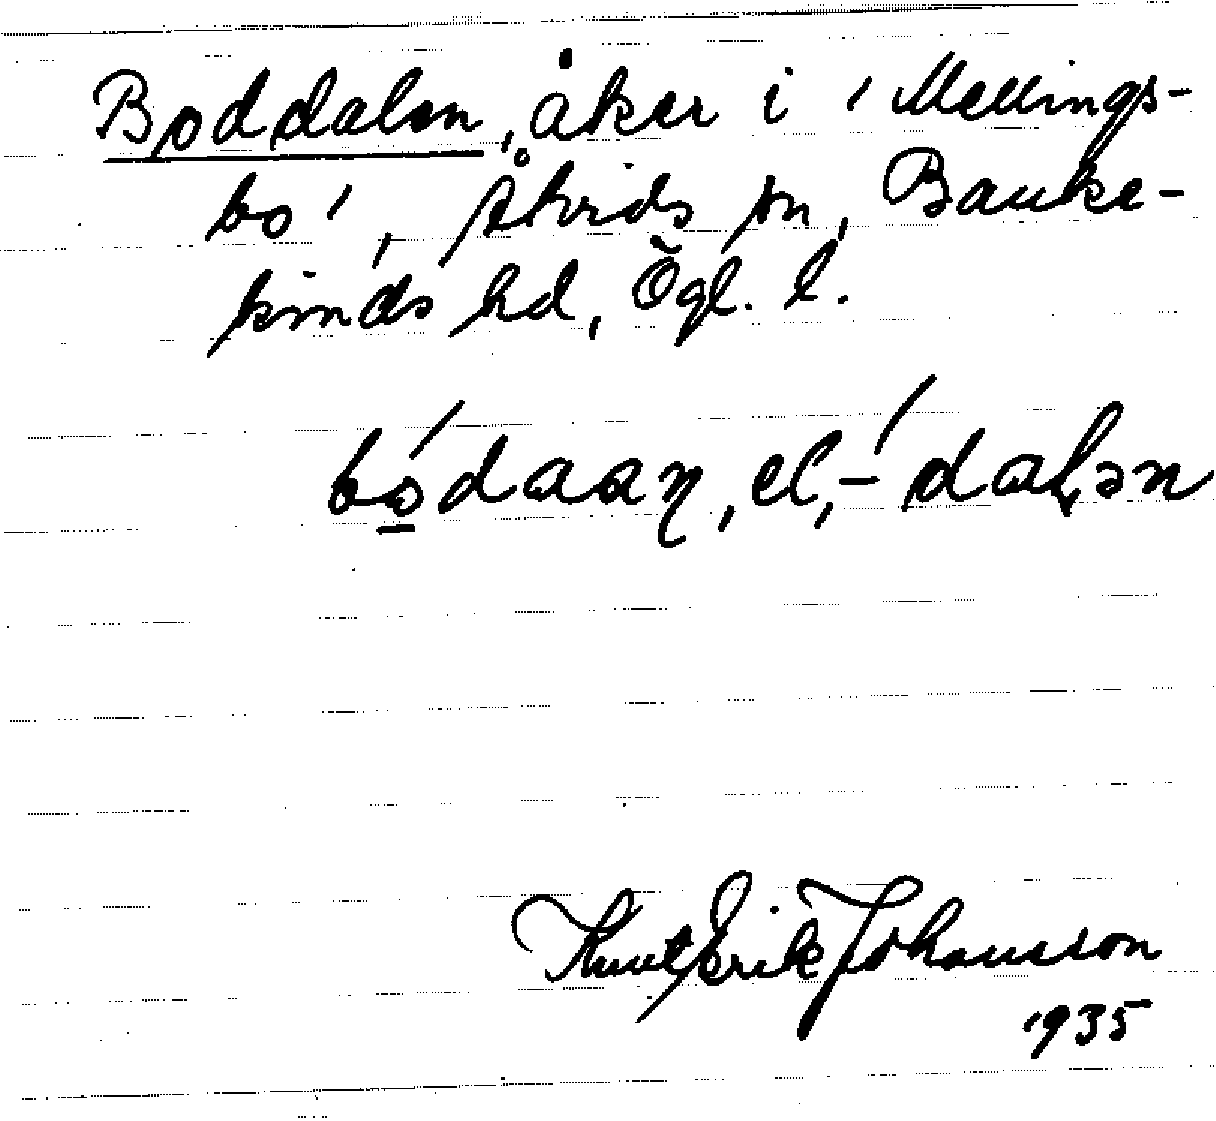 Boddalen, åker i 'Mellings-
bo', Åtvids sn, Banke-
kinds hd, Ögl. l.
bó̱daaɳ, el, -́daɭən
Knut Erik Johansson
1935